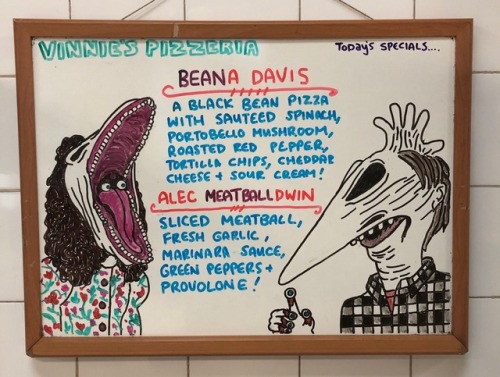 VINNIE'S PIZZERIA
TODAY'S SPECIALS....
BEANA DAVIS
A BLACK BEAN PIZZA
WITH SAUTEED SPINACH,
PORTOBELLO MUSHROOM,
ROASTED RED PEPPER,
TORTILLA CHIPS, CHEDDAR
CHEESE + SOUR CREAM!
ALEC MEATBALLDWIN
SLICED MEATBALL,
FRESH GARLIC,
MARINARA SAUCE,
GREEN PEPPERS +
PROVOLONE!